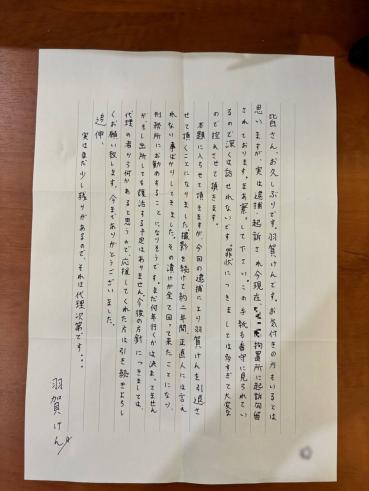 皆さん、お久しぶりです。羽賀けんです。お気付きの方もいるとは
思いますが、実は逮捕・起訴され今現在、拘置所に起訴勾留
されております。まあ察して下さい。この手紙も看守に見られてい
るので深くは話せれないです。罪状につきましては多すぎて大変な
ので控えさせて頂きます。
本題に入らせて頂きますが、今回の逮捕により羽賀けんを引退さ
せて頂くことになりました。撮影を続けて約二年間、正直人には言え
れない事ばかりしてきました。その漬けが全て回って来たことになり、
刑務所にお勤めすることになりそうです。まだ何年行くかは決まってません
が、もし出所しても復活する予定はありません。今後の方針につきましては、
代理の者から何かあると思うので、応援してくれた方は引き続きよろし
くお願い致します。今までありがとうございました。
追伸、
実はまだ少し残りがあるので、それは代理次第です...
羽賀けん